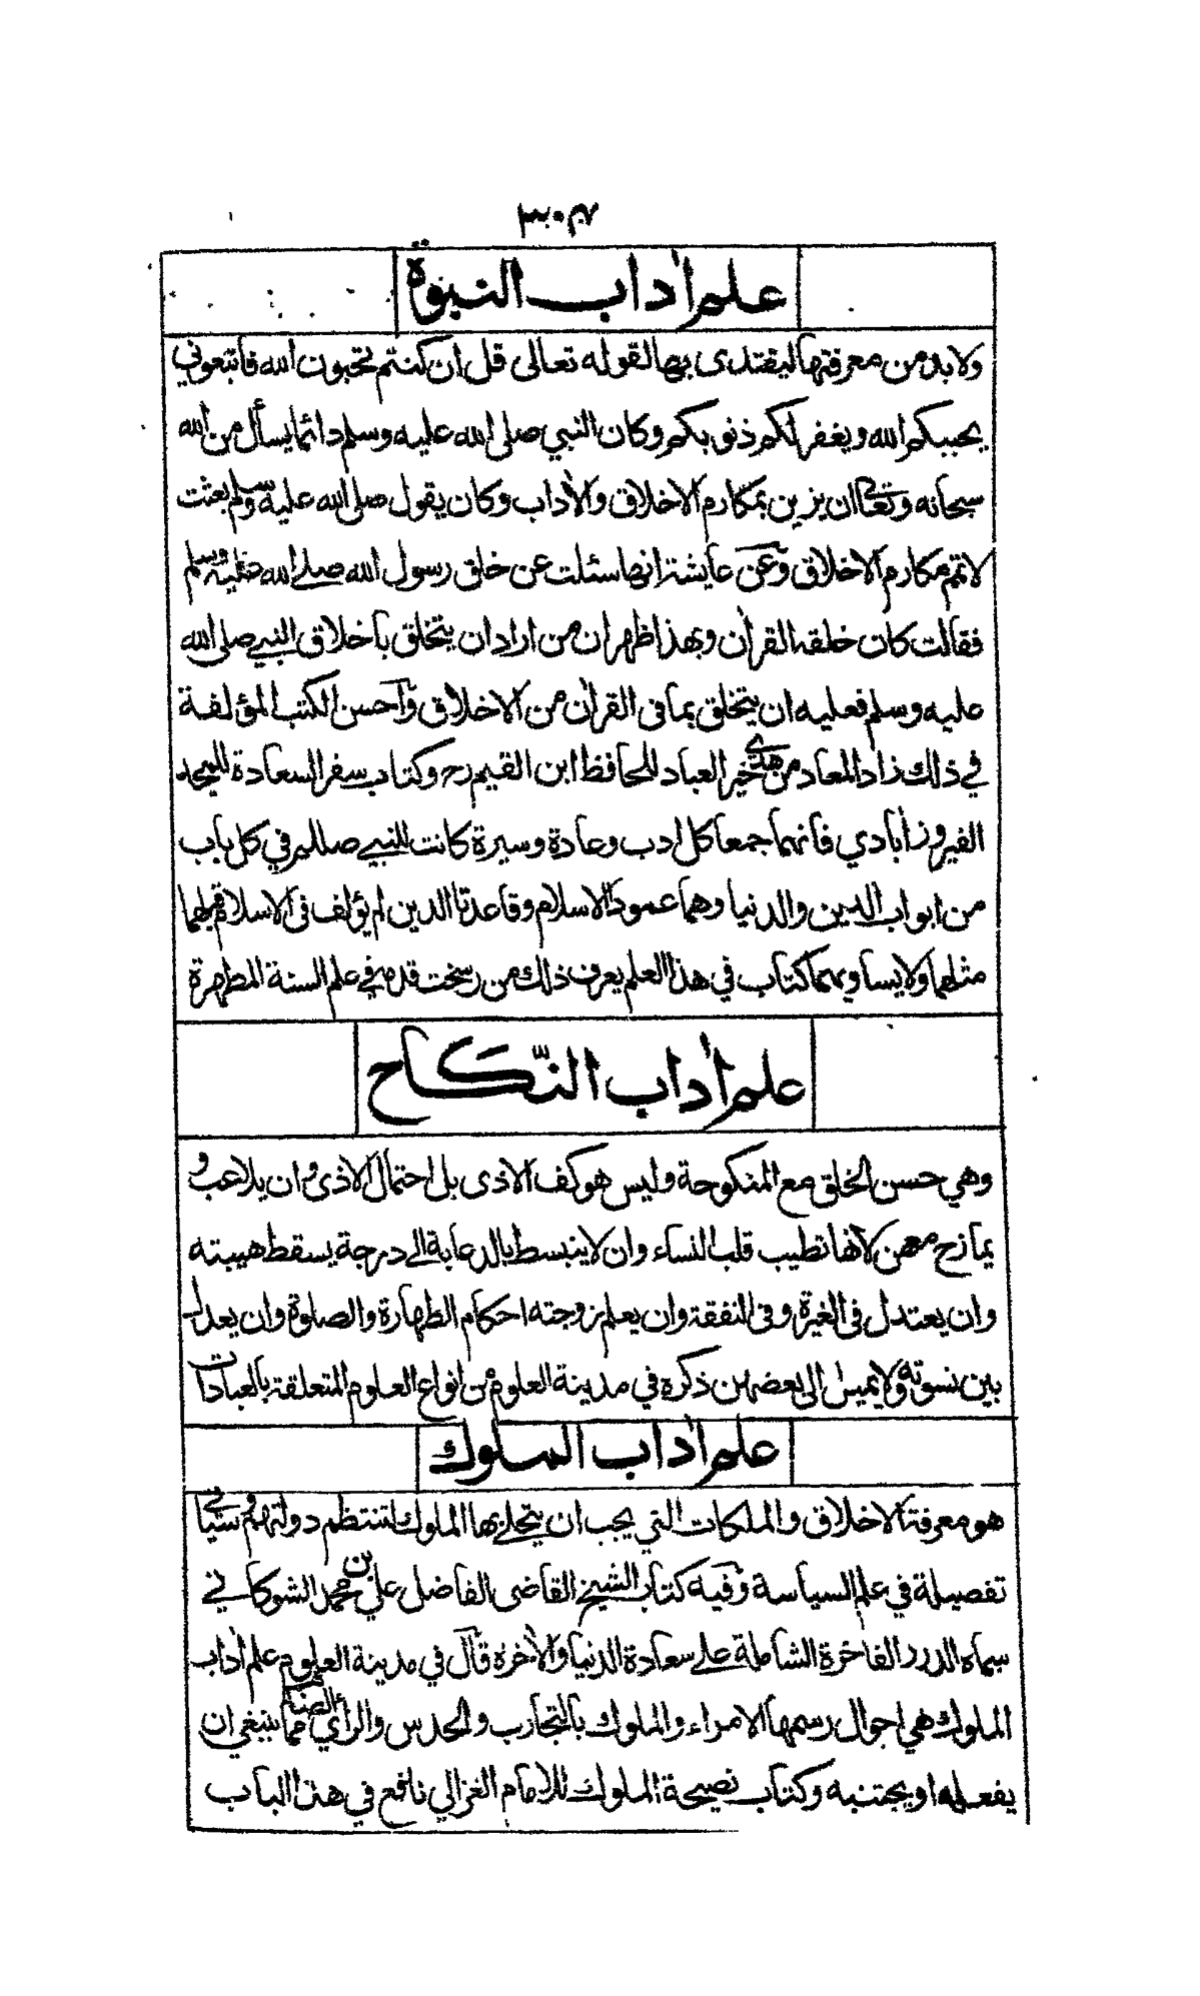 علم اٰداب النبوة
ولا بد من معرفتها ليقتدى بها لقوله تعالى قل ان كنتم تحبون الله فاتبعوني
يحببكم الله ويغفر لكم ذنوبكم وكان النبي صلى الله عليه وسلم دائما يسأل من الله
سبحانه وتعالى ان يزين بمكارم الاخلاق والأداب وكان يقول صلى الله عليه وسلم بعثت
لاتمم مكارم الاخلاق وعن عايشة انها سئلت عن خلق رسول الله صلے الله عليه وسلم
فقالت كان خلقه القراٰن وبهذا ظهر ان من اراد ان يتخلق باخلاق النبے صلى الله
عليه وسلم فعليه ان يتخلق بما فى القراٰن من الاخلاق واحسن الكتب المؤلفة
في ذلك زاد المعاد من هدے خير العباد للحافظ ابن القيم رح وكتاب سفر السعادة للمجد
الفيروزاٰبادي فانهما جمعا كل ادب وعادة وسيرة كانت للنبے صللم في كل باب
من ابواب الدين والدنيا وهما عمودا الاسلام وقاعدتا الدين لم يؤلف فى الاسلام قبلهما
مثلهما ولا يساويهما كتاب في هذا العلم يعرف ذلك من رسخت قدمه في علم السنة المطهرة
علم اٰداب النّكاح
وهي حسن الخلق مع المنكوحة وليس هو كف الاذى بل احتمال الاذى وان يلاعب و
يمازح معهن لانها تطيب قلب النساء وان لا ينبسط بالدعابة الے درجة يسقط هيبته
وان يعتدل فى الغيرة وفى النفقة وان يعلم زوجته احكام الطهارة والصلوة وان يعدل
بين نسوته ولا يميل الى بعضهن ذكره في مدينة العلوم من انواع العلوم المتعلقة بالعبادات
علم اٰداب الملوك
هو معرفة الاخلاق والملكات التي يجب ان يتحلى بها الملوك لتنتظم دولتهم وسيأتي
تفصيله في علم السياسة وفيه كتاب الشيخ القاضى الفاضل علي بن محمد الشوكاني
سماه الدرر الفاخرة الشاملة علے سعادة الدنيا والأخرة قال في مدينة العلوم علم اٰداب
الملوك هي احوال رسمها الامراء والملوك بالتجارب والحدس والرأي مما ينبغي ان
يفعله او يجتنبه وكتاب نصيحة الملوك للامام الغزالي نافع في هذا الباب